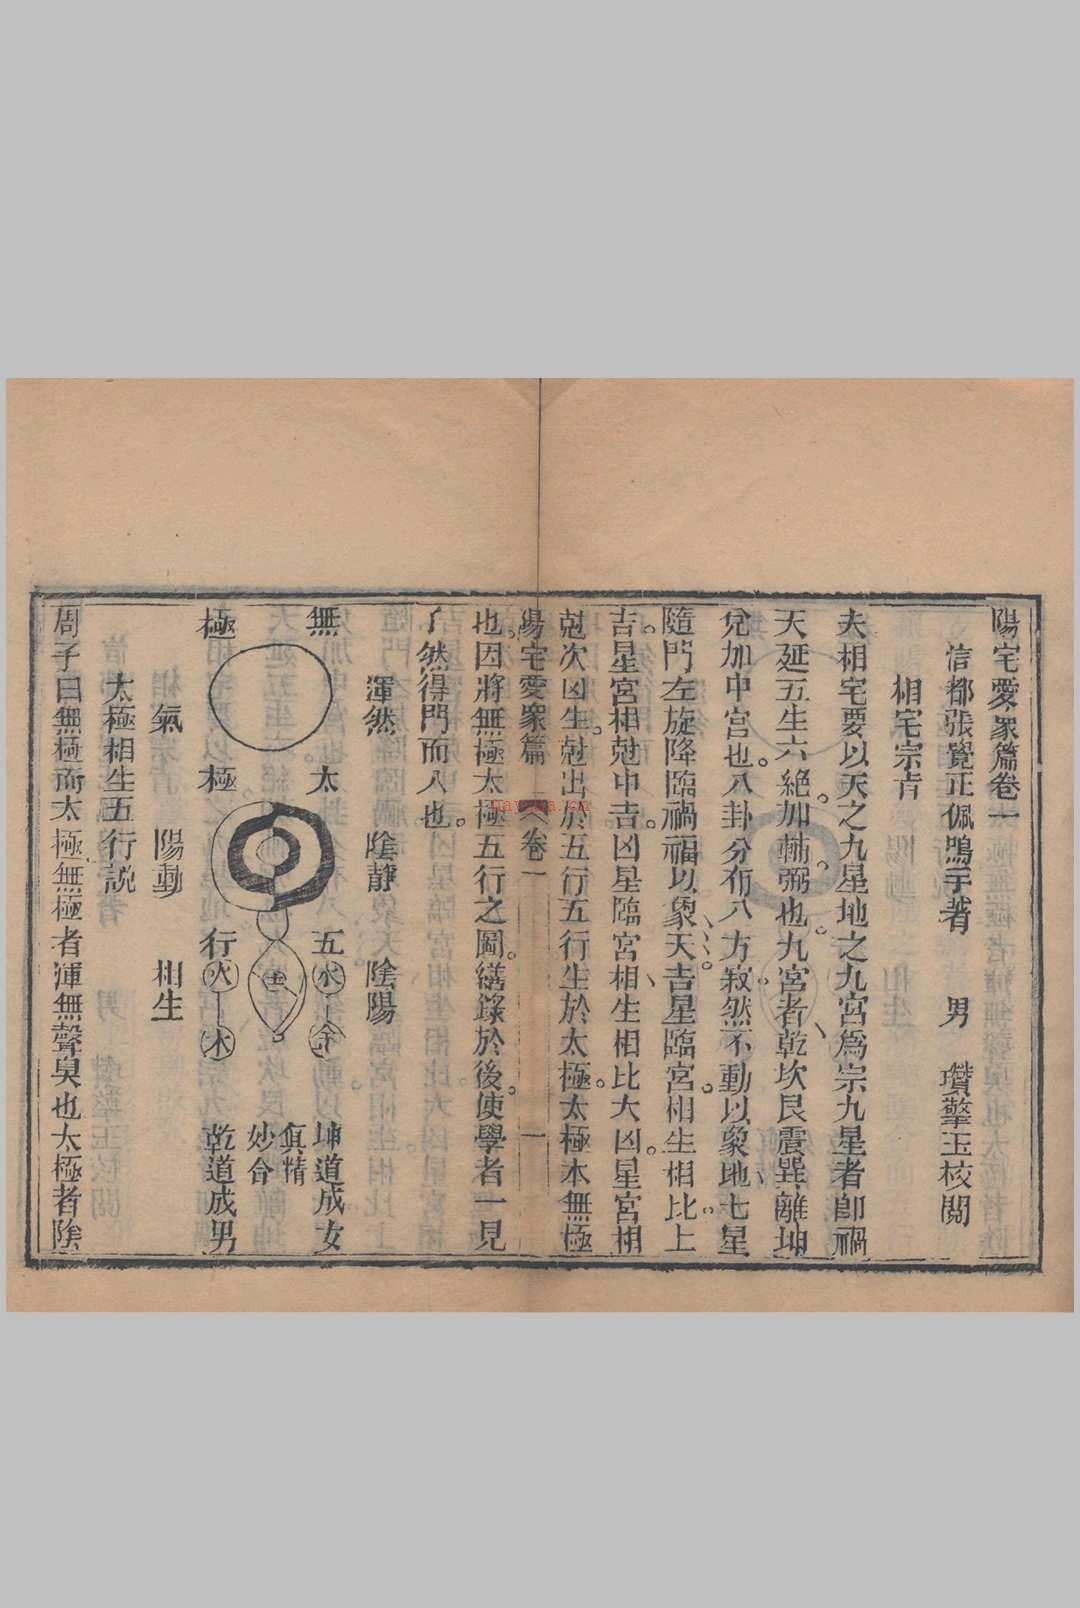 陽宅愛眾篇卷一
信都張覺正佩鳴子著　男　瓚擎玉校閱
相宅宗旨
夫相宅要以天之九星地之九宮為宗九星者卽禍
天延五生六絶加輔弼也。九宮者乾坎艮震巽離坤
兌加中宮也。八卦分布八方寂然不動以象地。七星
隨門左旋降臨禍福以象天。吉星臨宮。相生相比。上
吉。星宮相尅中吉。凶星臨宮相生相比大凶。星宮相
尅次凶。生尅出於五行五行生於太極。太極本無極
陽宅愛眾篇　卷一　一
也。因將無極太極五行之圖。繕錄於後。使學者一見
了然得門而入也。
渾然　陰靜　陰陽
無　太　五水金　坤道成女
真精
妙合
極　極　行火木　乾道成男
土
氣　陽動　相生
太極相生五行說
周子曰無極而太極無極者渾無聲臭也太極者陰
nayona.cn